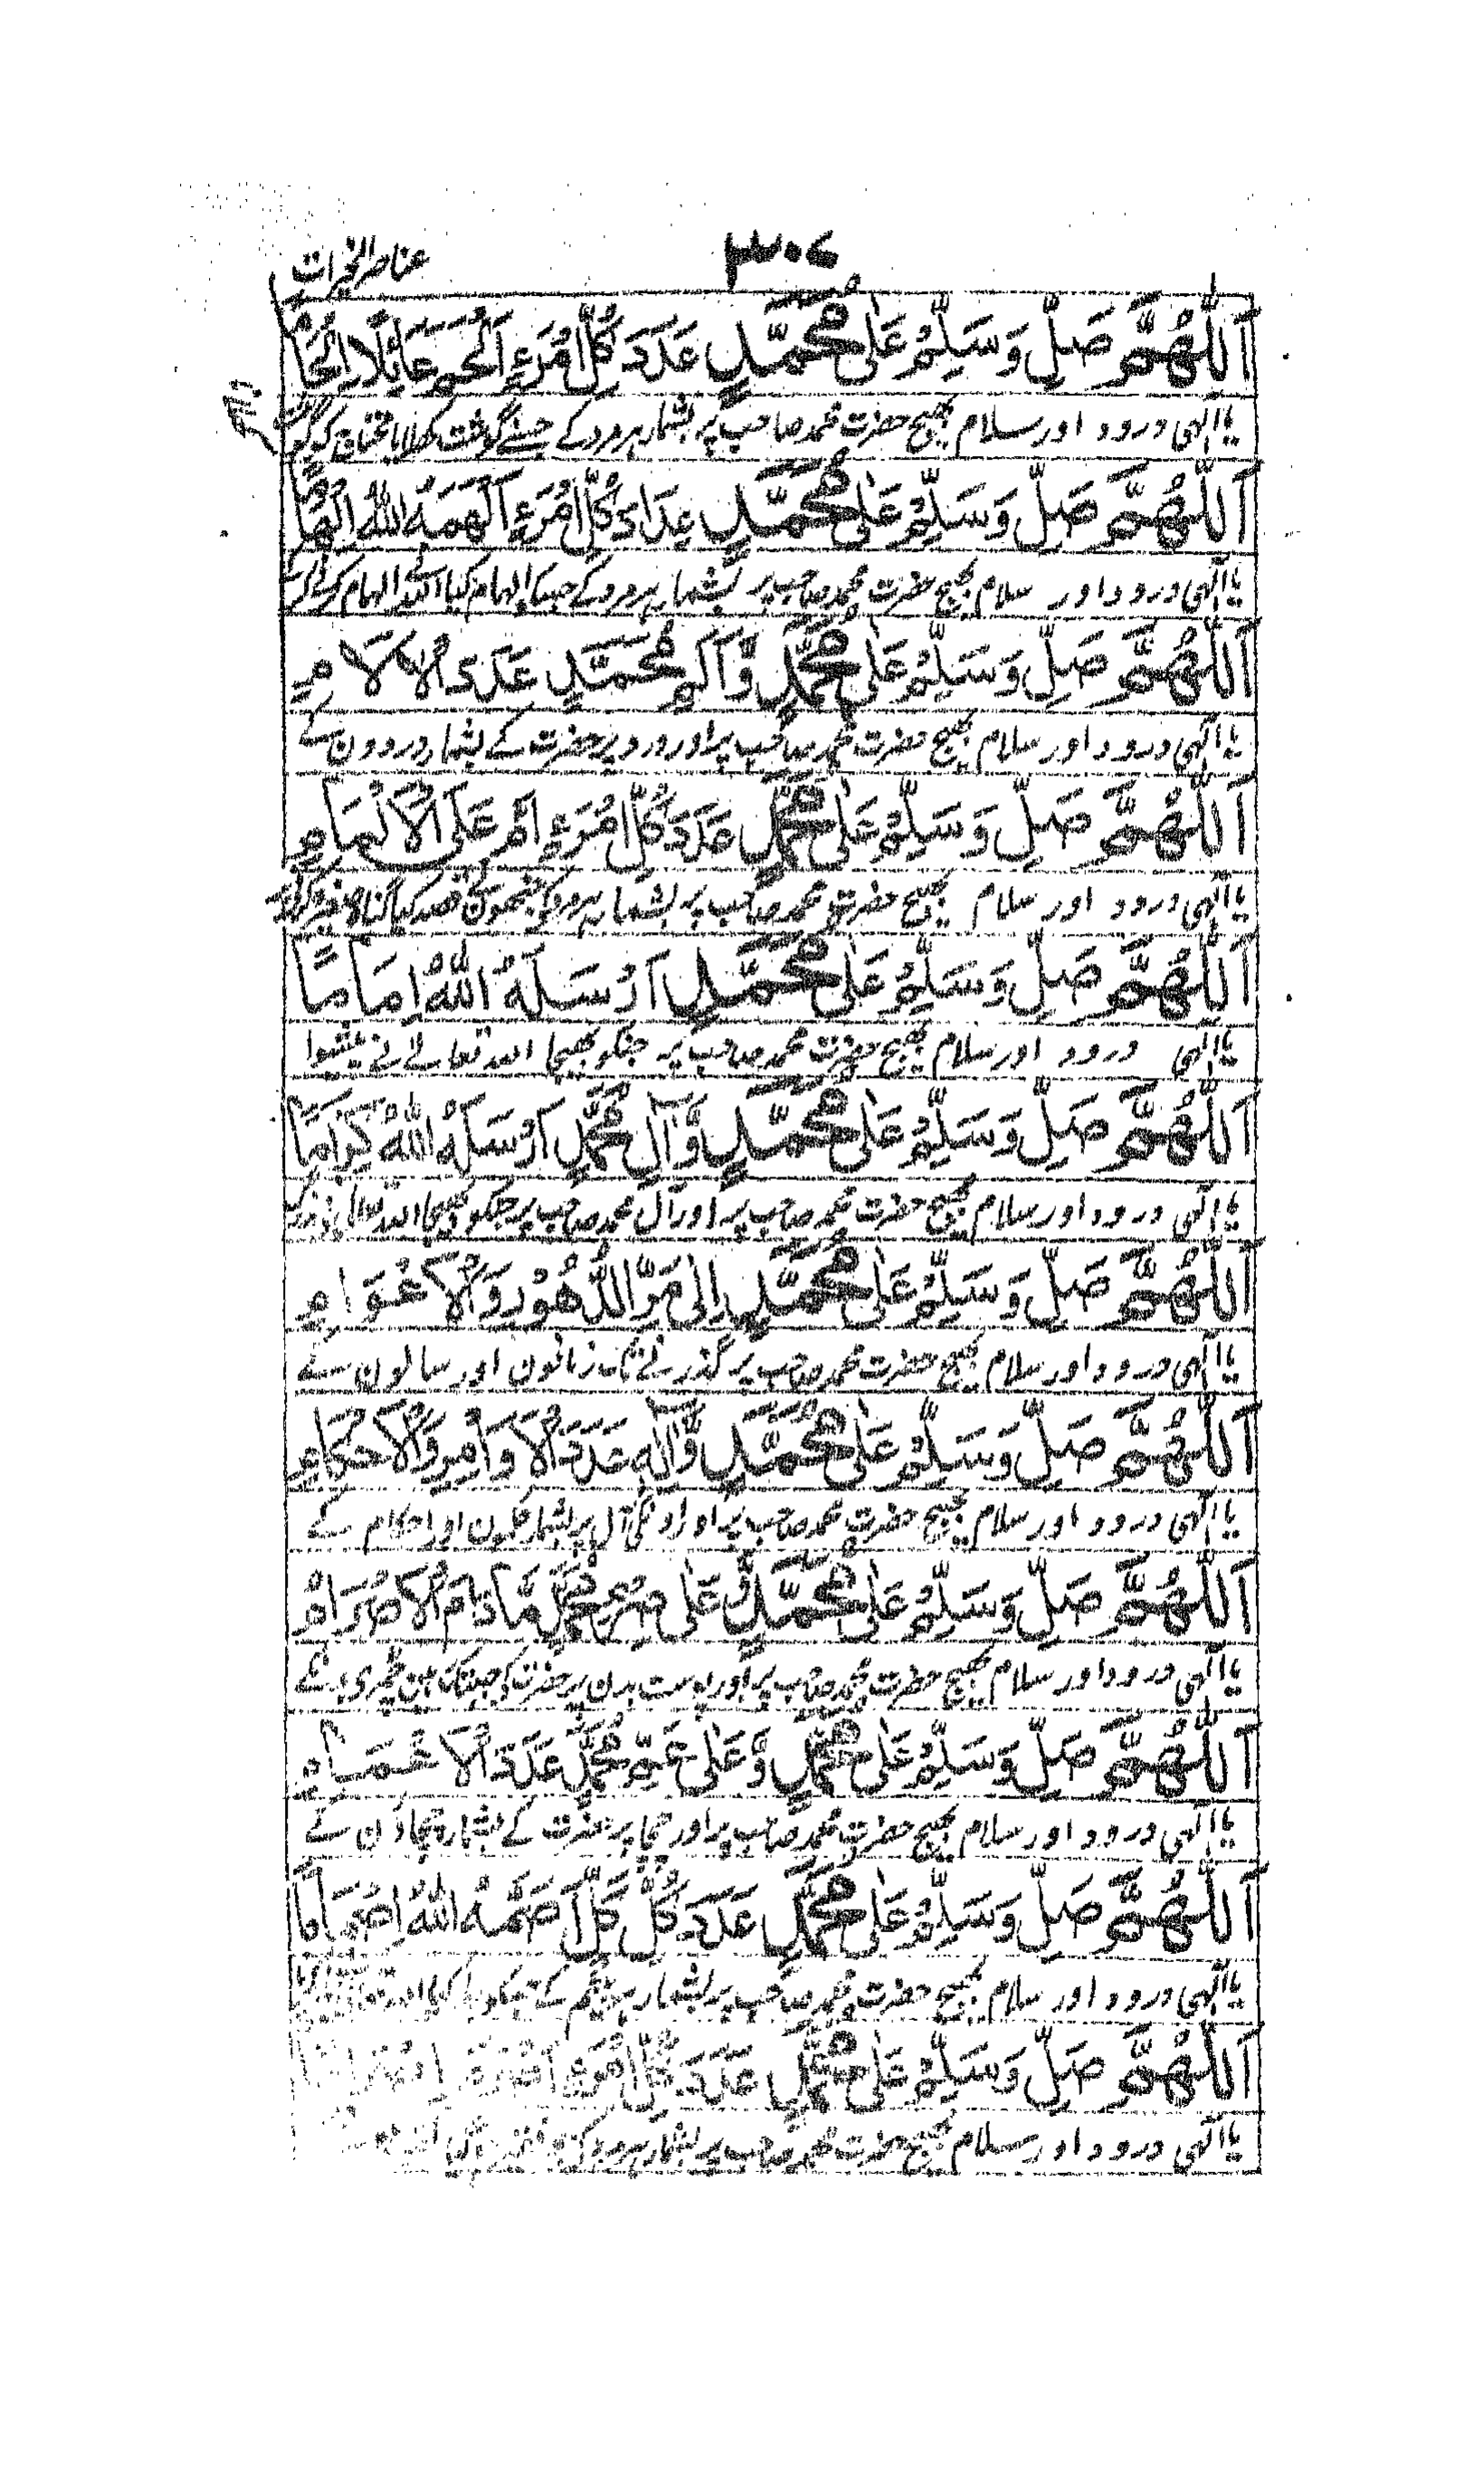 عناصر الخیرات
۳۰۷
اَللّٰهُمَّ صَلِّ وَسَلِّمْ عَلٰی مُحَمَّدٍ عَدَدَ كُلِّ امْرَءٍ اَلْحَمَ عَائِلًا اِلْحَامًا
یا الٰہی درود اور سلام بھیج حضرت محمد صاحب پر بشمار ہر مرد کے جسنے گوشت کھلایا محتاج کو
اَللّٰهُمَّ صَلِّ وَسَلِّمْ عَلٰی مُحَمَّدٍ عَدَدَ كُلِّ امْرَءٍ اَلْهَمَهُ اللّٰهُ اِلْهَامًا
یا الٰہی درود اور سلام بھیج حضرت محمد صاحب پر بشمار ہر مرد کے جسکو الہام کیا اللہ نے الہام کرنے کر
اَللّٰهُمَّ صَلِّ وَسَلِّمْ عَلٰی مُحَمَّدٍ وَّاٰلِ مُحَمَّدٍ عَدَدَ الْاٰلَامِ
یا الٰہی درود اور سلام بھیج حضرت محمد صاحب پر اور درد پر حضرت کے بشمار دردون کے
اَللّٰهُمَّ صَلِّ وَسَلِّمْ عَلٰی مُحَمَّدٍ عَدَدَ كُلِّ امْرَءٍ اَلَمَّ عَلَی الْاِلْمَامِ
یا الٰہی درود اور سلام بھیج حضرت محمد صاحب پر بشمار ہر مرد کے جنھون نے قصد کیا گناہ صغیرہ
اَللّٰهُمَّ صَلِّ وَسَلِّمْ عَلٰی مُحَمَّدٍ اَرْسَلَهُ اللّٰهُ اِمَامًا
یا الٰہی درود اور سلام بھیج حضرت محمد صاحب پر جنکو بھیجا اللہ تعالے نے پیشوا
اَللّٰهُمَّ صَلِّ وَسَلِّمْ عَلٰی مُحَمَّدٍ وَّاٰلِ مُحَمَّدٍ اَرْسَلَهُ اللّٰهُ كِرَامًا
یا الٰہی درود اور سلام بھیج حضرت محمد صاحب پر اور آل محمد صاحب پر جنکو بھیجا اللہ تعالی نے
اَللّٰهُمَّ صَلِّ وَسَلِّمْ عَلٰی مُحَمَّدٍ اِلٰی مَرِّ الدُّهُوْرِ وَالْاَعْوَامِ
یا الٰہی درود اور سلام بھیج حضرت محمد صاحب پر گذرنے تک زمانون اور سالون کے
اَللّٰهُمَّ صَلِّ وَسَلِّمْ عَلٰی مُحَمَّدٍ وَّاٰلِهٖ عَدَدَ الْاَوَامِرِ وَالْاَحْكَامِ
یا الٰہی درود اور سلام بھیج حضرت محمد صاحب پر اور اونکی آل پر بشمار حکمون اور احکام کے
اَللّٰهُمَّ صَلِّ وَسَلِّمْ عَلٰی مُحَمَّدٍ وَّعَلٰی صِرْمِ مُحَمَّدٍ مَّا دَامَ الْاَصْرَامُ
یا الٰہی درود اور سلام بھیج حضرت محمد صاحب پر اور پوست بدن پر حضرت کے جبتک ہین چمڑی بدن کے
اَللّٰهُمَّ صَلِّ وَسَلِّمْ عَلٰی مُحَمَّدٍ وَّعَلٰی عَمِّ مُحَمَّدٍ عَدَدَ الْاَعْمَامِ
یا الٰہی درود اور سلام بھیج حضرت محمد صاحب پر اور چچا پر حضرت کے بشمار چچاؤن کے
اَللّٰهُمَّ صَلِّ وَسَلِّمْ عَلٰی مُحَمَّدٍ عَدَدَ كُلِّ كَلٍّ اَصَمَّهُ اللّٰهُ اِصْمَامًا
یا الٰہی درود اور سلام بھیج حضرت محمد صاحب پر بشمار ہر یتیم کے جسکو بہرا کیا اللہ تعالی
اَللّٰهُمَّ صَلِّ وَسَلِّمْ عَلٰی مُحَمَّدٍ عَدَدَ كُلِّ امْرَءٍ
یا الٰہی درود اور سلام بھیج حضرت محمد صاحب پر بشمار ہر مرد کے